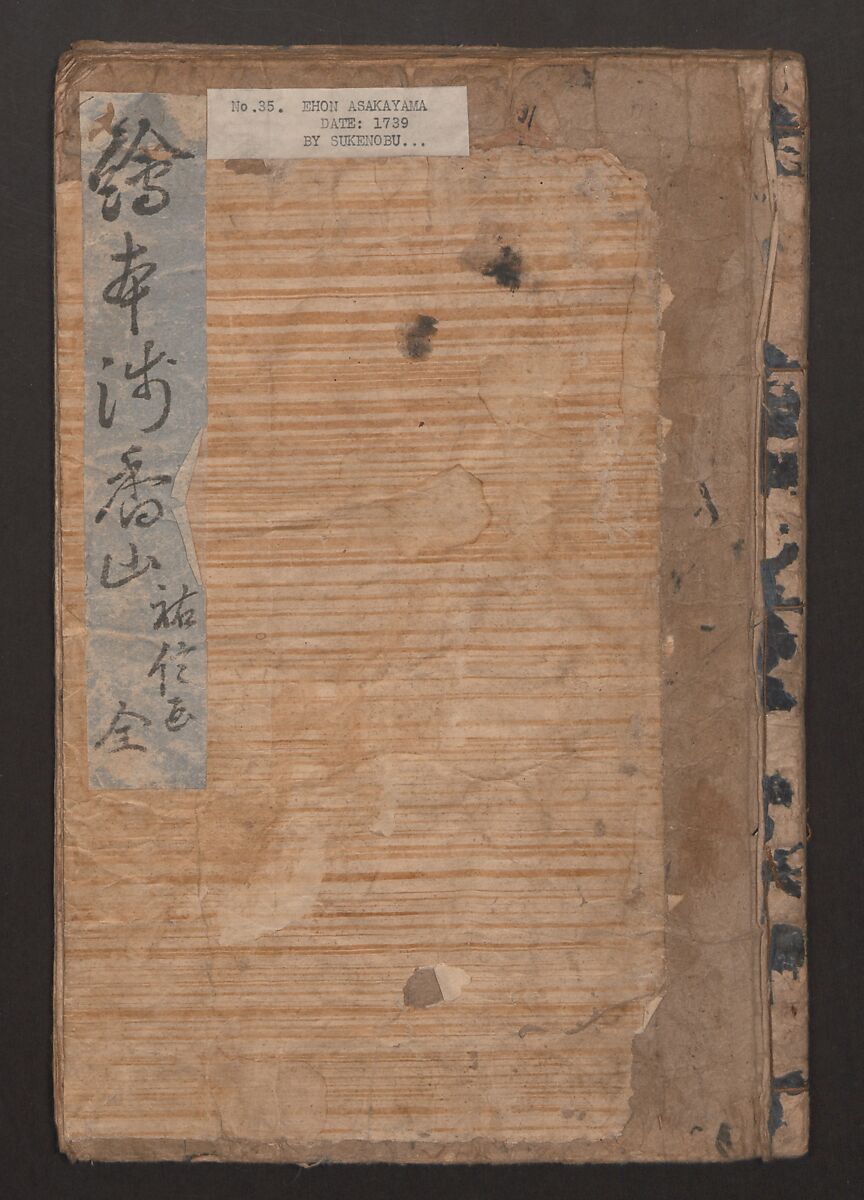 No.35. EHON ASAKAYAMA
DATE: 1739
BY SUKENOBU...
繪本浅香山
祐信画
全